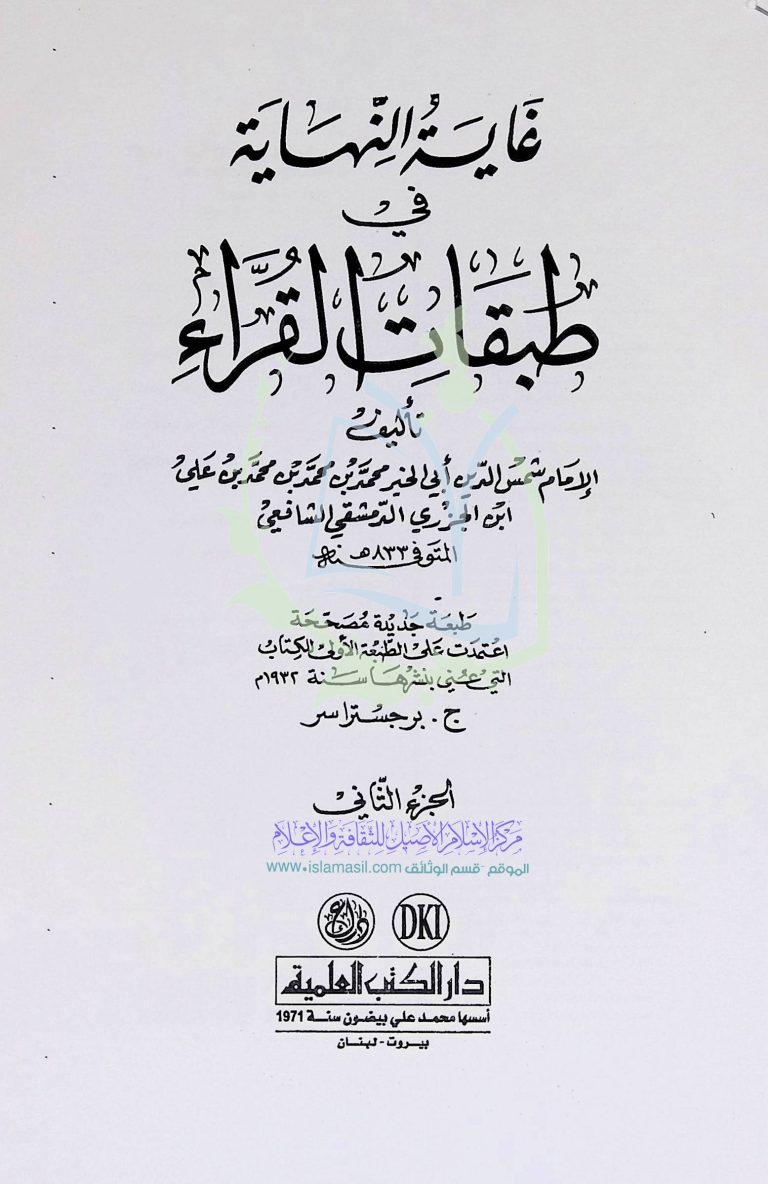 غَايَةُ النِّهَايَة
في
طَبَقَاتِ القُرَّاءِ
تأليف
الإمَام شمْس الدّين أبي الخير محمَّد بْن محمَّد بْن محمَّد بْن عَليْ
ابن الجَزَري الدّمشقي الشافعي
المتَوفى سنة ٨٣٣ هـ
طَبعَة جَديدة مُصَحّحَة
اعتمدَت عَلى الطّبعَة الأولى للكِتاب
التي عُني بنشرهَا سَنة ١٩٣٢م
ج. برجستراسر
الجزء الثَّاني
مركز الإسلام الأصيل للثقافة والإعلام
الموقع - قسم الوثائق www.islamasil.com
DKI
دار الكتب العلمية
أسسها محمد علي بيضون سنة 1971
بيروت - لبنان